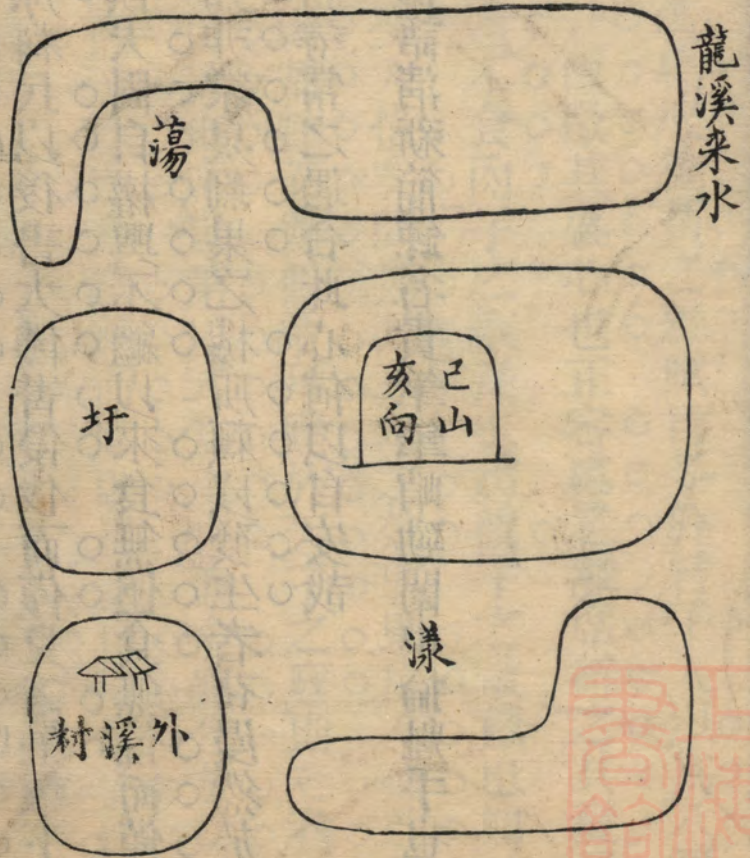 龍溪来水
蕩
巳山
亥向
圩
漾
外溪村